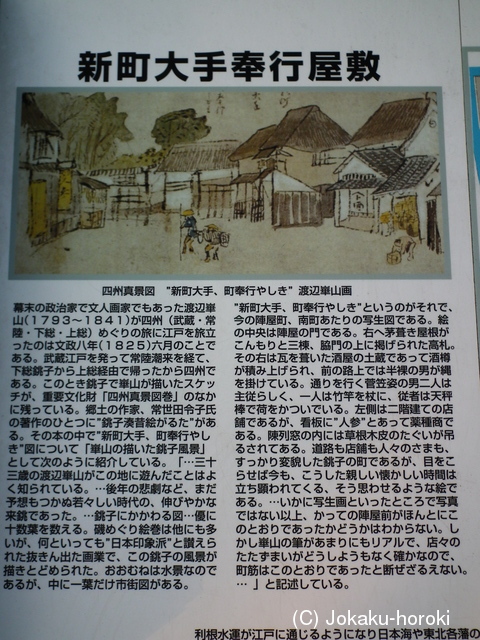 新町大手奉行屋敷
四州真景図　"新町大手、町奉行やしき"　渡辺崋山画
幕末の政治家で文人画家でもあった渡辺崋
山(1793〜1841)が四州（武蔵・常
陸・下総・上総）めぐりの旅に江戸を旅立
ったのは文政八年(1825)六月のことで
ある。武蔵江戸を発って常陸潮来を経て、
下総銚子から上総経由で帰ったから四州で
ある。このとき銚子で崋山が描いたスケッ
チが、重要文化財「四州真景図巻」のなか
に残っている。郷土の作家、常世田令子氏
の著作のひとつに"銚子湊昔絵がるた"があ
る。その本の中で"新町大手、町奉行やし
き"図について「崋山の描いた銚子風景」
として次のように紹介している。「…三十
三歳の渡辺崋山がこの地に遊んだことはよ
く知られている。…後年の悲劇など、まだ
予想もつかぬ若々しい時代の、伸びやかな
来銚であった。…銚子にかかわる図…優に
十数葉を数える。磯めぐり絵巻は他にも多
いが、何といっても"日本印象派"と讃えら
れた抜きん出た画業で、この銚子の風景が
描きとどめられた。おおむねは水景なので
あるが、中に一葉だけ市街図がある。
"新町大手、町奉行やしき"というのがそれで、
今の陣屋町、南町あたりの写生図である。絵
の中央は陣屋の門である。右へ茅葺き屋根が
こんもりと三棟、脇門の上に掲げられた高札。
その右は瓦を葺いた酒屋の土蔵であって酒樽
が積み上げられ、前の路上では半裸の男が縄
を掛けている。通りを行く菅笠姿の男二人は
主従らしく、一人は竹竿を杖に、従者は天秤
棒で荷をかついでいる。左側は二階建ての店
舗であるが、看板に"人参"とあって薬種商で
ある。陳列窓の内には草根木皮のたぐいが吊
るされてある。道路も店舗も人々のさまも、
すっかり変貌した銚子の町であるが、目をこ
らせば今も、こうした親しい懐かしい時間は
立ち顕われてくる、そう思わせるような絵で
ある。…いかに写生図といったところで写真
ではない以上、かっての陣屋前がほんとにこ
のとおりであったかどうかはわからない。し
かし崋山の筆があまりにもリアルで、店々の
たたずまいがどうしようもなく確かなので、
町筋はこのとおりであったと断ぜざるえない。
…」と記述している。
利根水運が江戸に通じるようになり日本海や東北各藩の
(C) Jokaku-horoki